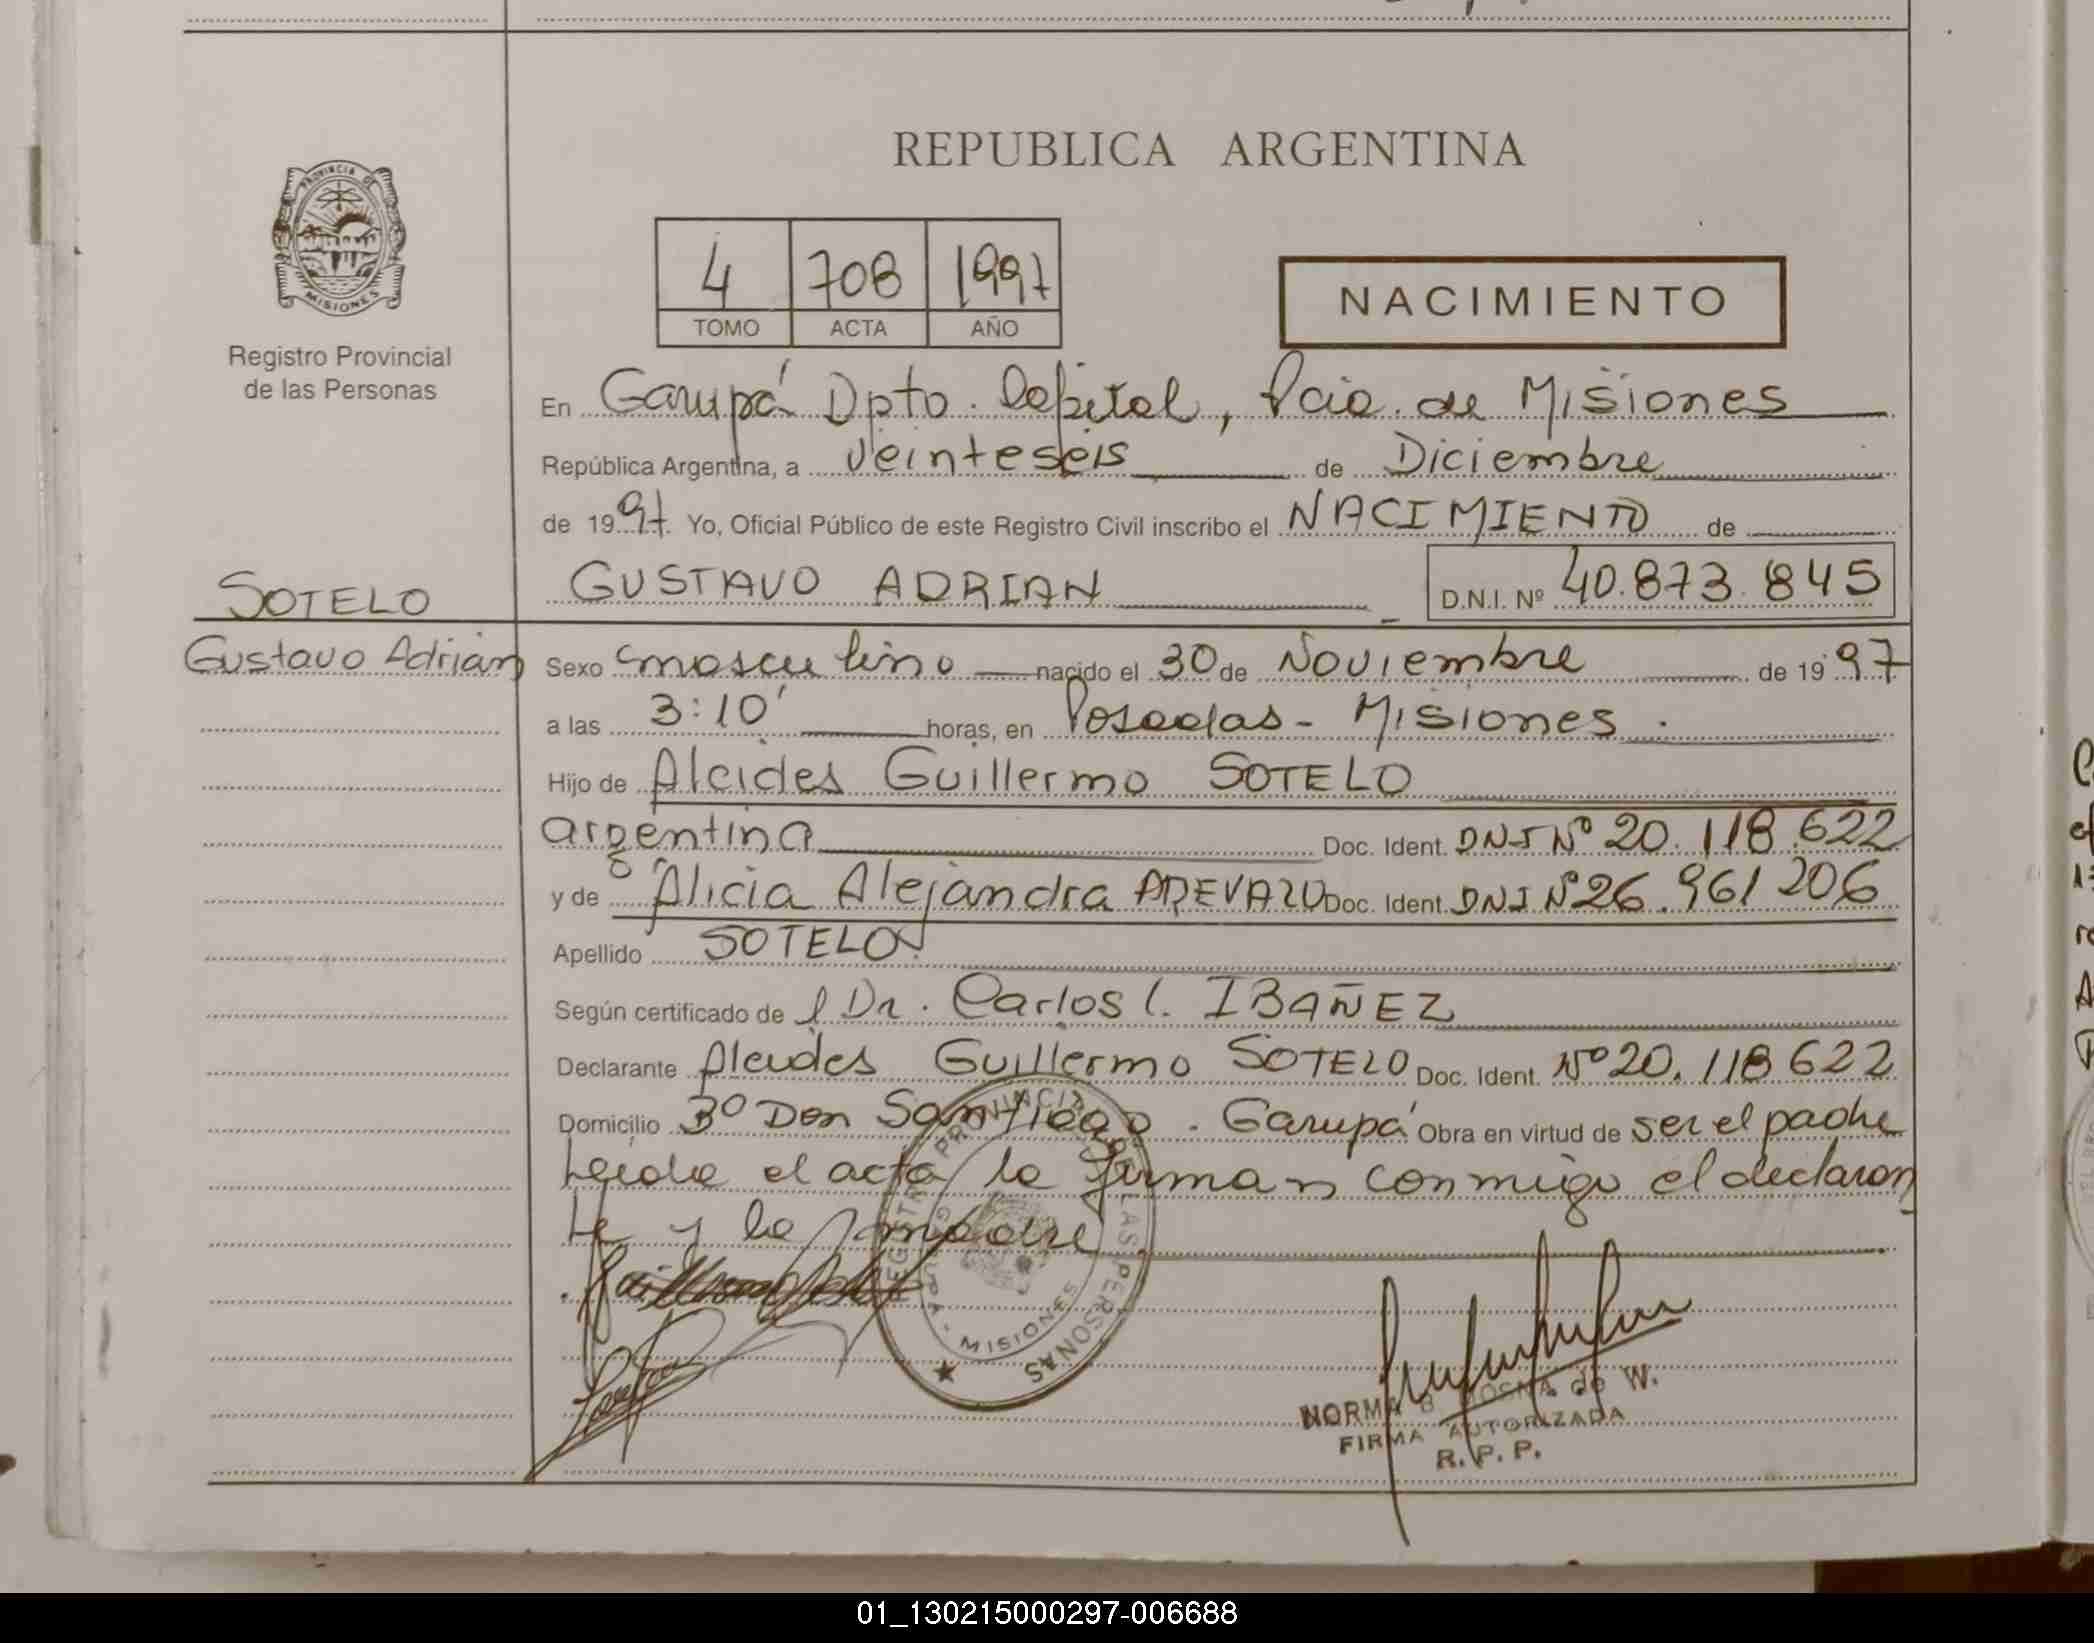 PROVINCIA DE
MISIONES
Registro Provincial
de las Personas
REPUBLICA ARGENTINA
4 708 1997
TOMO ACTA AÑO
NACIMIENTO
En Garupá Dpto. Capital, Pcia. de Misiones
República Argentina, a veinteseis de Diciembre
de 1997. Yo, Oficial Público de este Registro Civil inscribo el NACIMIENTO de
SOTELO
GUSTAVO ADRIAN
D.N.I. Nº 40.873.845
Gustavo Adrián
Sexo masculino nacido el 30 de Noviembre de 1997
a las 3:10' horas, en Posadas - Misiones.
Hijo de Alcides Guillermo SOTELO
argentina Doc. Ident. DNI Nº 20.118.622
y de Alicia Alejandra AREVALO Doc. Ident. DNI Nº 26.961206
Apellido SOTELO.
Según certificado del Dr. Carlos C. IBAÑEZ
Declarante Alcides Guillermo SOTELO Doc. Ident. Nº 20.118622
Domicilio Bº Don Santiago. Garupá Obra en virtud de ser el padre
Leida el acta la firman conmigo el declaran
te y la madre
REGISTRO PROVINCIAL DE LAS PERSONAS
GARUPA - MISIONES
NORMA B. de W.
FIRMA AUTORIZADA
R. P. P.
01_130215000297-006688